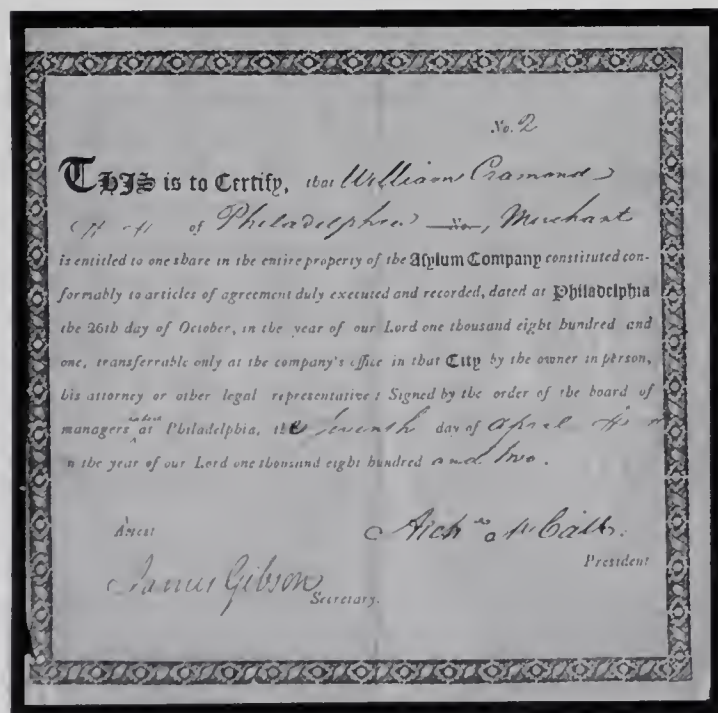 No. 2
THIS is to Certify, that William Cramond
of Philadelphia Merchant
is entitled to one share in the entire property of the Asylum Company constituted con-
formably to articles of agreement duly executed and recorded, dated at Philadelphia
the 26th day of October, in the year of our Lord one thousand eight hundred and
one, transferrable only at the company's office in that City by the owner in person,
his attorney or other legal representative: Signed by the order of the board of
managers at Philadelphia, the seventh day of April
n the year of our Lord one thousand eight hundred and two.
Attest
Archd McCall
President
James Gibson
Secretary.